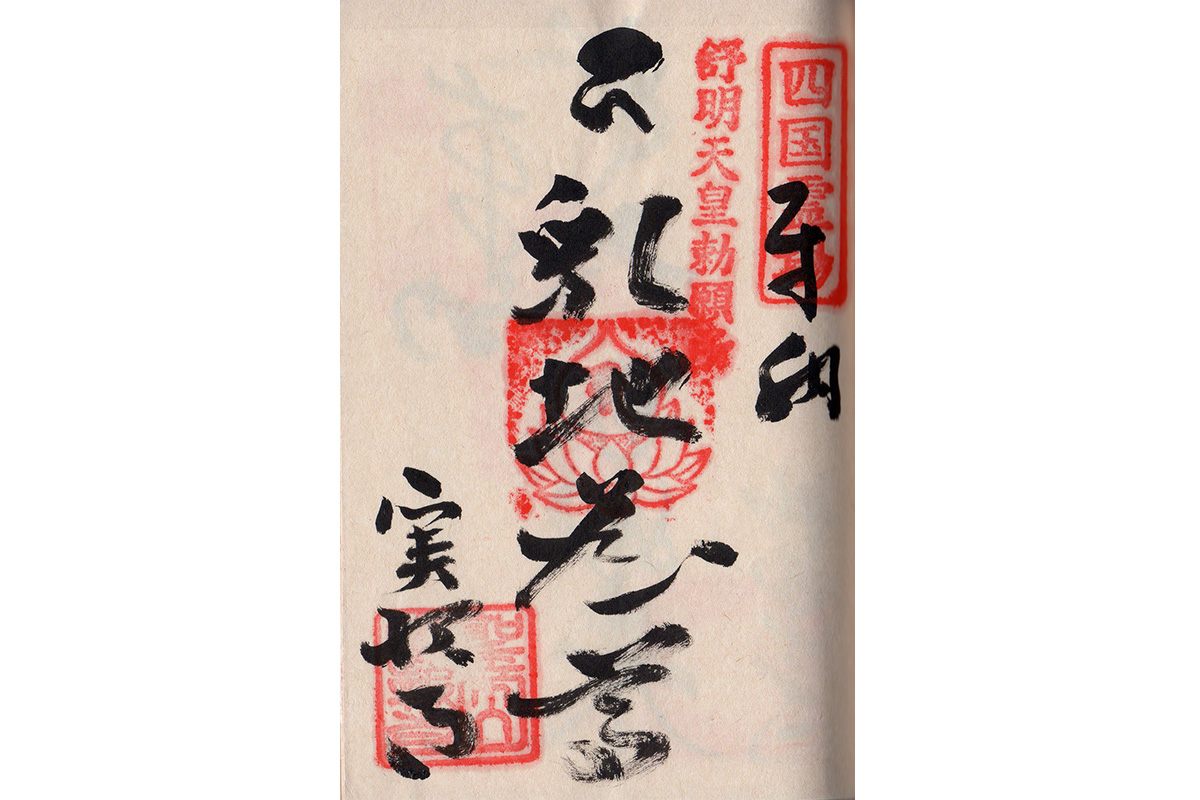 四国霊場
奉納
舒明天皇勅願
乳地蔵尊
実報寺